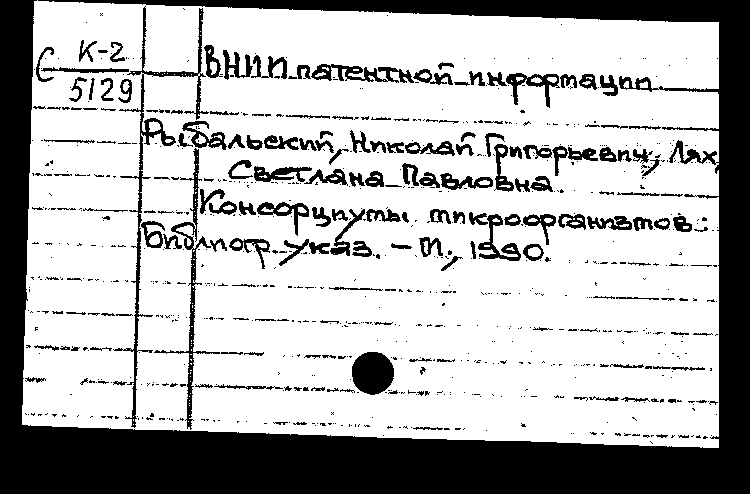 С К-2
5129
ВНИИ патентной информации
Рыбальский, Николай Григорьевич, Лях,
Светлана Павловна.
Консорциумы микроорганизмов:
Библиогр. указ. – М., 1990.